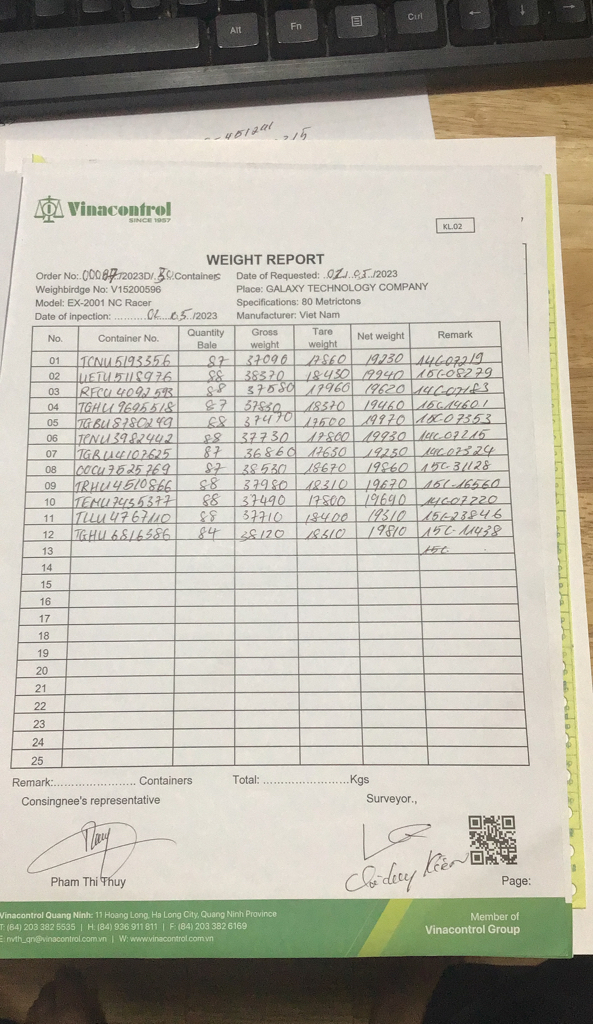 Alt Fn Ctrl
Vinacontrol
SINCE 1957
KL.02
WEIGHT REPORT
Order No:.00087./2023D/.30.Containers Date of Requested: .02/.05./2023
Weighbirdge No: V15200596 Place: GALAXY TECHNOLOGY COMPANY
Model: EX-2001 NC Racer Specifications: 80 Metrictons
Date of inpection: ..........02..05../2023 Manufacturer: Viet Nam
No. Container No. Quantity Bale Gross weight Tare weight Net weight Remark
01 TCNU5193556 87 37090 17860 19230 14C07219
02 UETU5118976 88 38370 18430 19940 15C-08279
03 RFCU4092593 88 37580 17960 19620 14C07183
04 TGHU9695518 87 37830 18370 19460 15C14601
05 TGBU8780249 88 37470 17500 19970 15C-07353
06 TCNU3982442 88 37730 17800 19930 14C-07215
07 TGBU4107625 87 36860 17630 19230 14C07324
08 OOCU7525769 87 38530 18670 19860 15C-31128
09 TRHU4510866 88 37980 18310 19670 15C-16560
10 TEMU7435377 88 37490 17800 19690 14C07220
11 TLLU4767110 88 37710 18400 19310 15C-23846
12 TGHU6816586 84 38120 18310 19810 15C-11438
13 15C
14
15
16
17
18
19
20
21
22
23
24
25
Remark:...................... Containers Total: ........................Kgs
Consingnee's representative Surveyor.,
Pham Thi Thuy Page:
Vinacontrol Quang Ninh: 11 Hoang Long, Ha Long City, Quang Ninh Province
T: (84) 203 382 5535 | H: (84) 936 911 811 | F: (84) 203 382 6169
E: nvth_qn@vinacontrol.com.vn | W: www.vinacontrol.com.vn
Member of
Vinacontrol Group